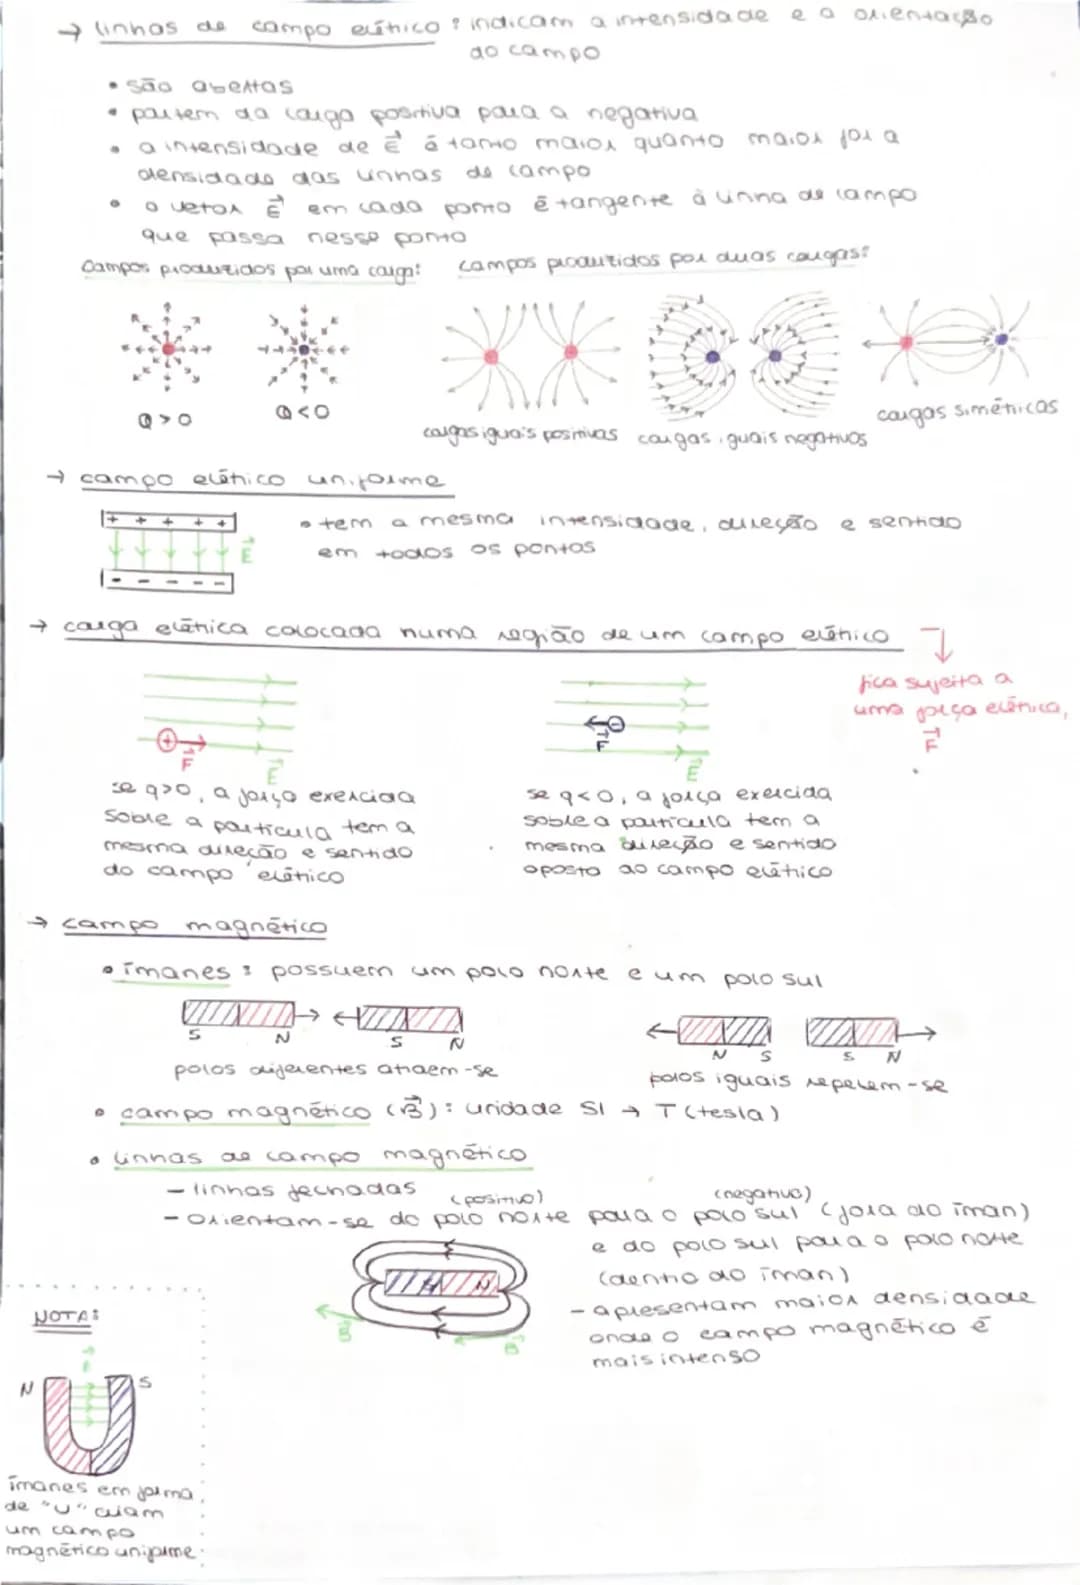 → linhas de campo elétrico: indicam a intensidade e a orientação
do campo
• são abertas
• partem da carga positiva para a negativa
• a intensidade de E é tanto maior quanto maior for a
densidade das linhas de campo
• o vetor E em cada ponto é tangente à linha de campo
que passa nesse ponto
Campos produzidos por uma carga:
campos produzidos por duas cargas:
Q>0
Q<0
cargas iguais positivas
cargas iguais negativas
cargas simétricas
→ campo elétrico uniforme
+ + + + +
E
- - - - -
• tem a mesma intensidade, direção e sentido
em todos os pontos
→ carga elétrica colocada numa região de um campo elétrico
fica sujeita a
uma força elétrica,
F
+
F
E
-
F
E
se q>0, a força exercida
sobre a partícula tem a
mesma direção e sentido
do campo elétrico
se q<0, a força exercida
sobre a partícula tem a
mesma direção e sentido
oposto ao campo elétrico
→ campo magnético
• ímanes: possuem um polo norte e um polo sul
S N S N
N S S N
polos diferentes atraem-se
polos iguais repelem-se
• campo magnético (B): unidade SI → T (tesla)
• linhas de campo magnético
- linhas fechadas
(positivo) (negativo)
- orientam-se do polo norte para o polo sul (fora do íman)
e do polo sul para o polo norte
(dentro do íman)
S N
B
B
- apresentam maior densidade
onde o campo magnético é
mais intenso
NOTA:
N S
ímanes em forma
de "U" criam
um campo
magnético uniforme